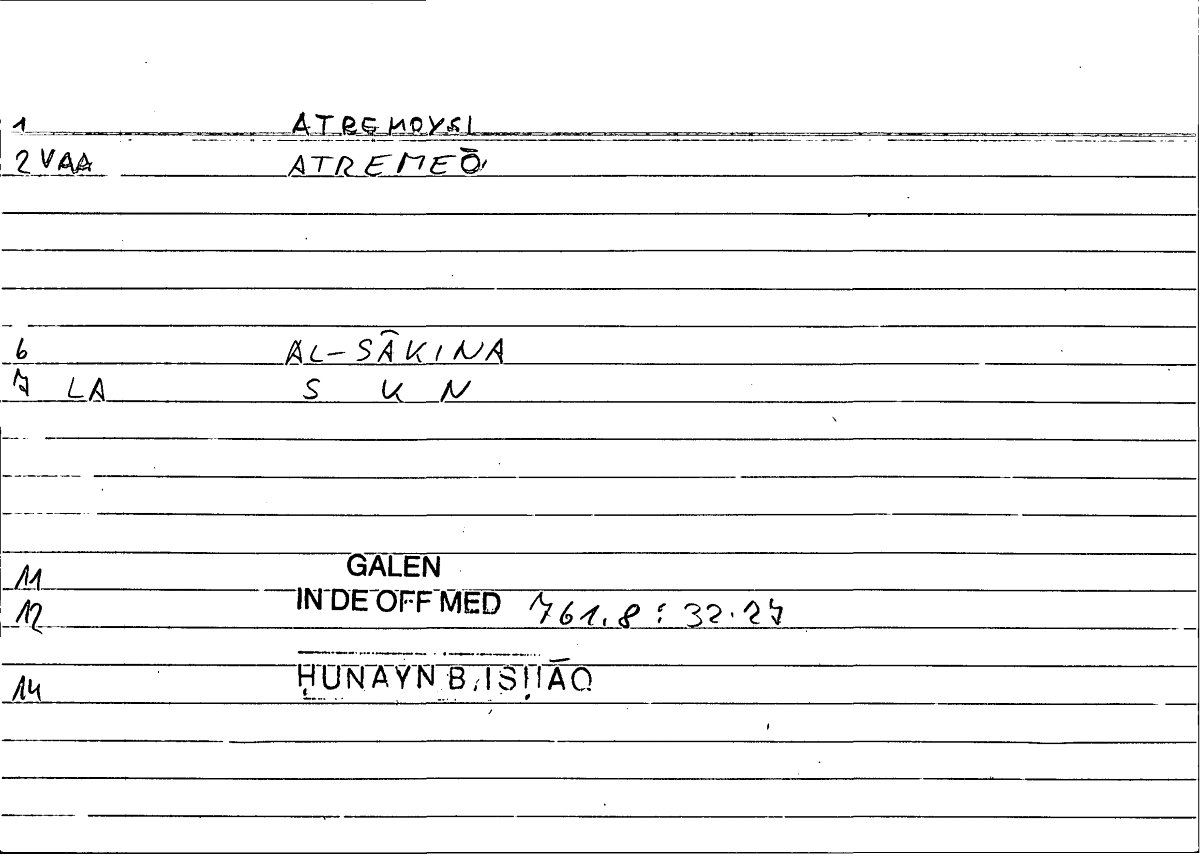 1 ATREMOYSI
2 VAA ATREMEŌ
6 AL-SĀKINA
7 LA S K N
11 GALEN
12 IN DE OFF MED 761.8 : 32.27
14 ḤUNAYN B. ISḤĀQ